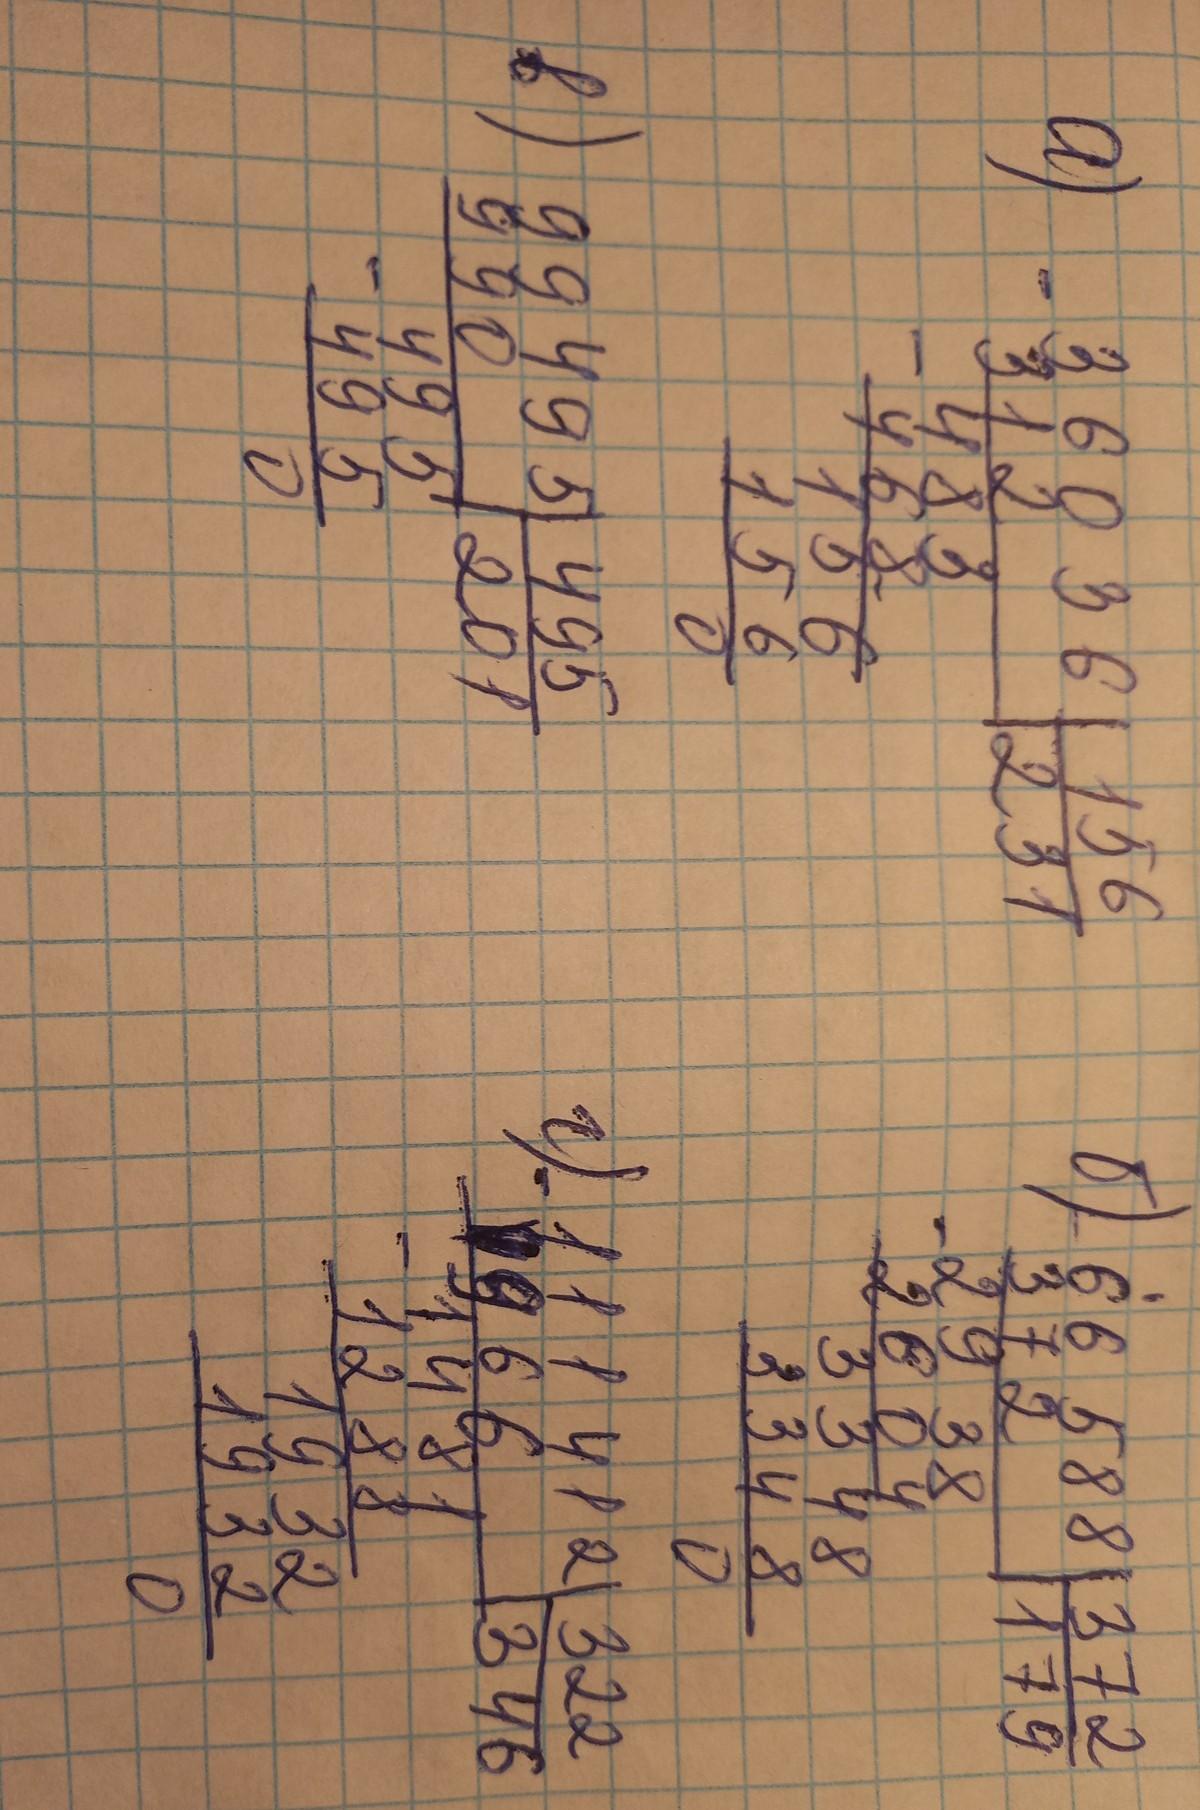 а) - 36036 | 156
312 | 231
- 483
468
156
156
0
б) - 66588 | 372
372 | 179
- 2938
2604
3348
3348
0
в) 99495 | 495
990 | 201
- 495
495
0
г) - 111412 | 322
966 | 346
- 1481
1288
1932
1932
0